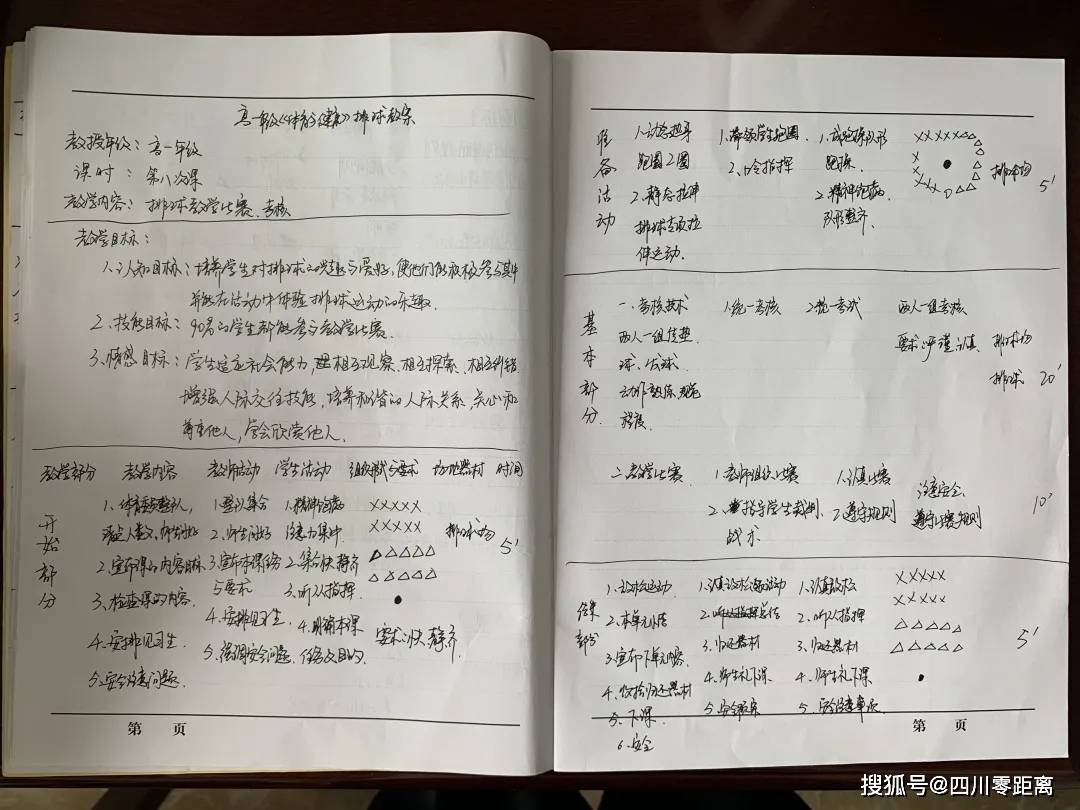 高一年级《体育与健康》排球教案
教授年级：高一年级
课时：第八次课
教学内容：排球教学比赛、考核
教学目标：
1、认知目标：培养学生对排球的兴趣与爱好，使他们能积极参与其中
并能在活动中体验排球运动的乐趣.
2、技能目标：90%的学生都能参与教学比赛.
3、情感目标：学生适应社会能力，相互观察、相互探索、相互纠错
增强人际交往技能，培养和谐的人际关系，关心和
尊重他人，学会欣赏他人.
教学部分 教学内容 教师活动 学生活动 组织形式与要求 场地器材 时间
开始部分
1、体育委员整队，
清点人数，师生问好
2、宣布课的内容目标
3、检查课的内容.
4、安排见习生.
5、安全注意问题.
1、整队集合
2、师生问好
3、宣布本课任务
与要求
4、安排见习生.
5、强调安全问题.
1、精神饱满
注意力集中
2、集合快静齐
3、听从指挥
4、明确本课
任务及目的.
XXXXX
XXXXX
△△△△△
△△△△△
●
要求：快、静、齐.
排球场
5′
第 页
准备活动
1、动态热身
跑圈2圈
2、静态拉伸
排球专项拉
伸运动.
1、带领学生跑圈
2、口令指挥
1、成跑操队形
跑操.
2、精神饱满
队形整齐.
排球场
5′
基本部分
一、考核技术
两人一组传垫
球、发球.
动作熟练规范
程度.
1、统一考核
2、统一考试
两人一组考核
要求：严谨认真
排球场
排球
20′
二、教学比赛
1、老师组织比赛
2、指导学生裁判、
战术
1、认真比赛
2、遵守规则
注意安全
遵守比赛规则
10′
结束部分
1、放松运动
2、本单元小结
3、宣布下单元内容.
4、收拾归还器材
5、下课.
6、安全
1、认真放松活动
2、总结
3、归还器材
4、师生礼下课
1、认真放松
2、听从指挥
3、归还器材
4、师生礼下课
5、安全注意事项
XXXXX
XXXXX
△△△△△
△△△△△
●
5′
第 页
搜狐号@四川零距离